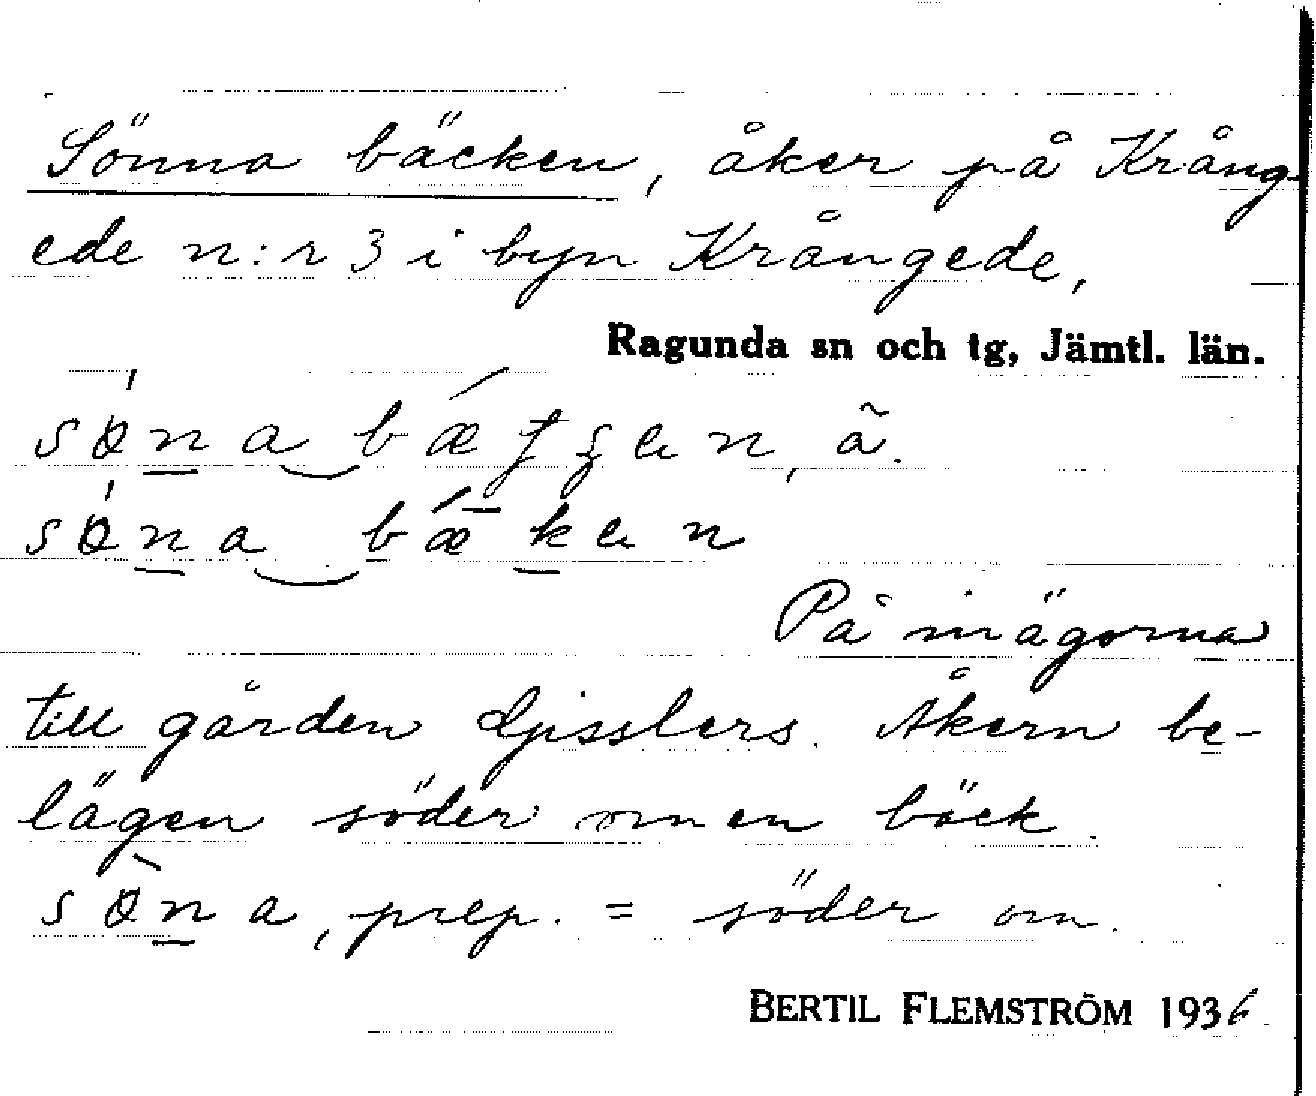 Sönna bäcken, åker på Krång-
ede n:r 3 i byn Krångede,
Ragunda sn och tg, Jämtl. län.
På inägorna
till gården Gisslers. Åkern be-
lägen söder om en bäck.
prep. = söder om.
BERTIL FLEMSTRÖM 1936